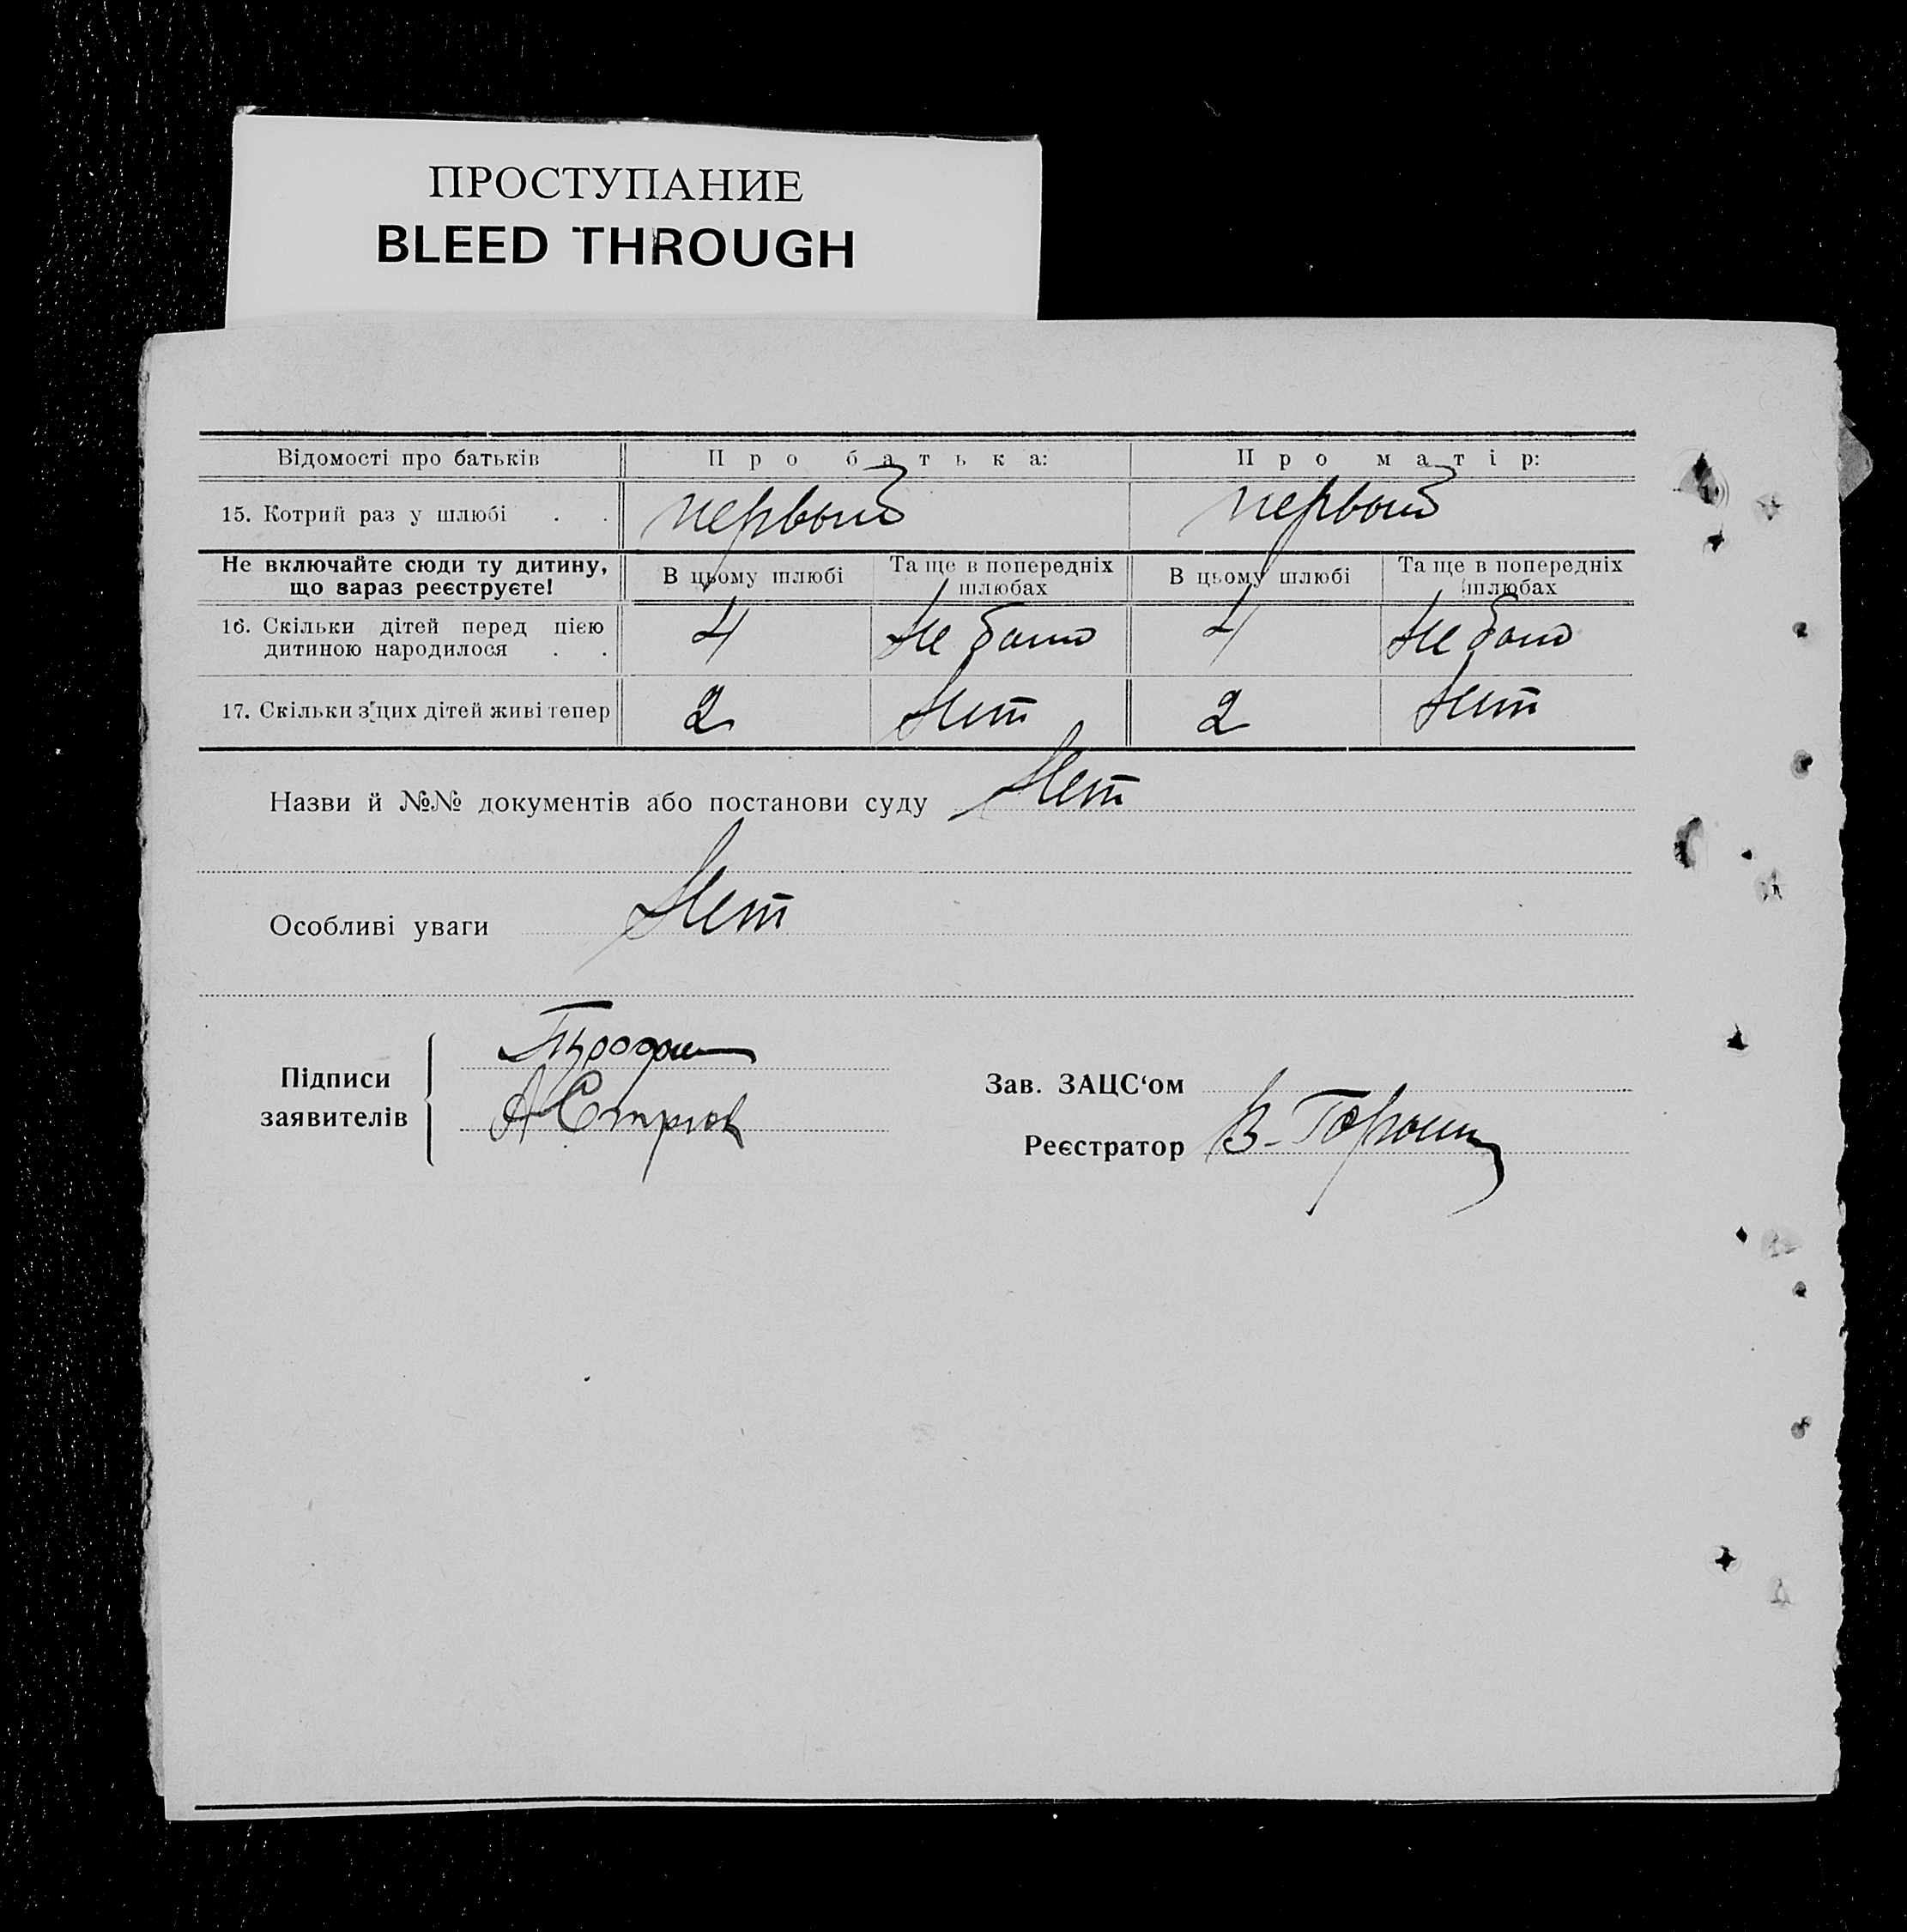 ПРОСТУПАНИЕ
BLEED THROUGH
Відомості про батьків Про батька: Про матір:
15. Котрий раз у шлюбі . . первый первый
Не включайте сюди ту дитину, що зараз реєструєте! В цьому шлюбі Та ще в попередніх шлюбах В цьому шлюбі Та ще в попередніх шлюбах
16. Скільки дітей перед цією дитиною народилося . . 4 Не было 4 Не было
17. Скільки з цих дітей живі тепер 2 Нет 2 Нет
Назви й №№ документів або постанови суду Нет
Особливі уваги Нет
Підписи
заявителів
Зав. ЗАЦС‘ом
Реєстратор В.